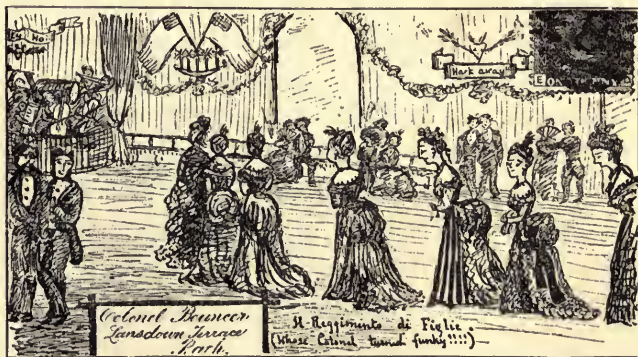 Hark away
Colonel Bouncer
Lansdown Terrace
Bath.
Il Reggimento di Figlie.
(Whose Colonel turned funky!!!!)